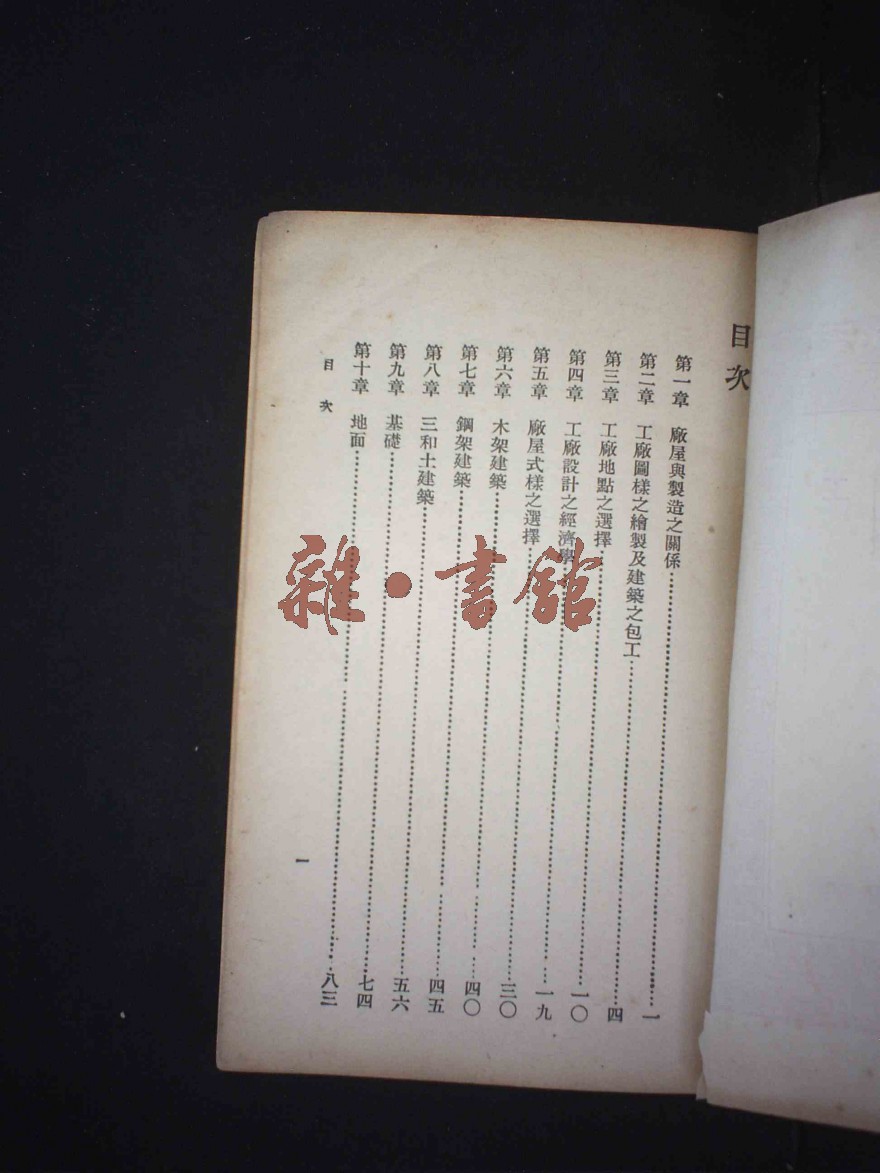 目次
第一章 廠屋與製造之關係……一
第二章 工廠圖樣之繪製及建築之包工……四
第三章 工廠地點之選擇……一〇
第四章 工廠設計之經濟學……一九
第五章 廠屋式樣之選擇……三〇
第六章 木架建築……四〇
第七章 鋼架建築……四五
第八章 三和土建築……五六
第九章 基礎……七四
第十章 地面……八三
目次
一
雜·書館